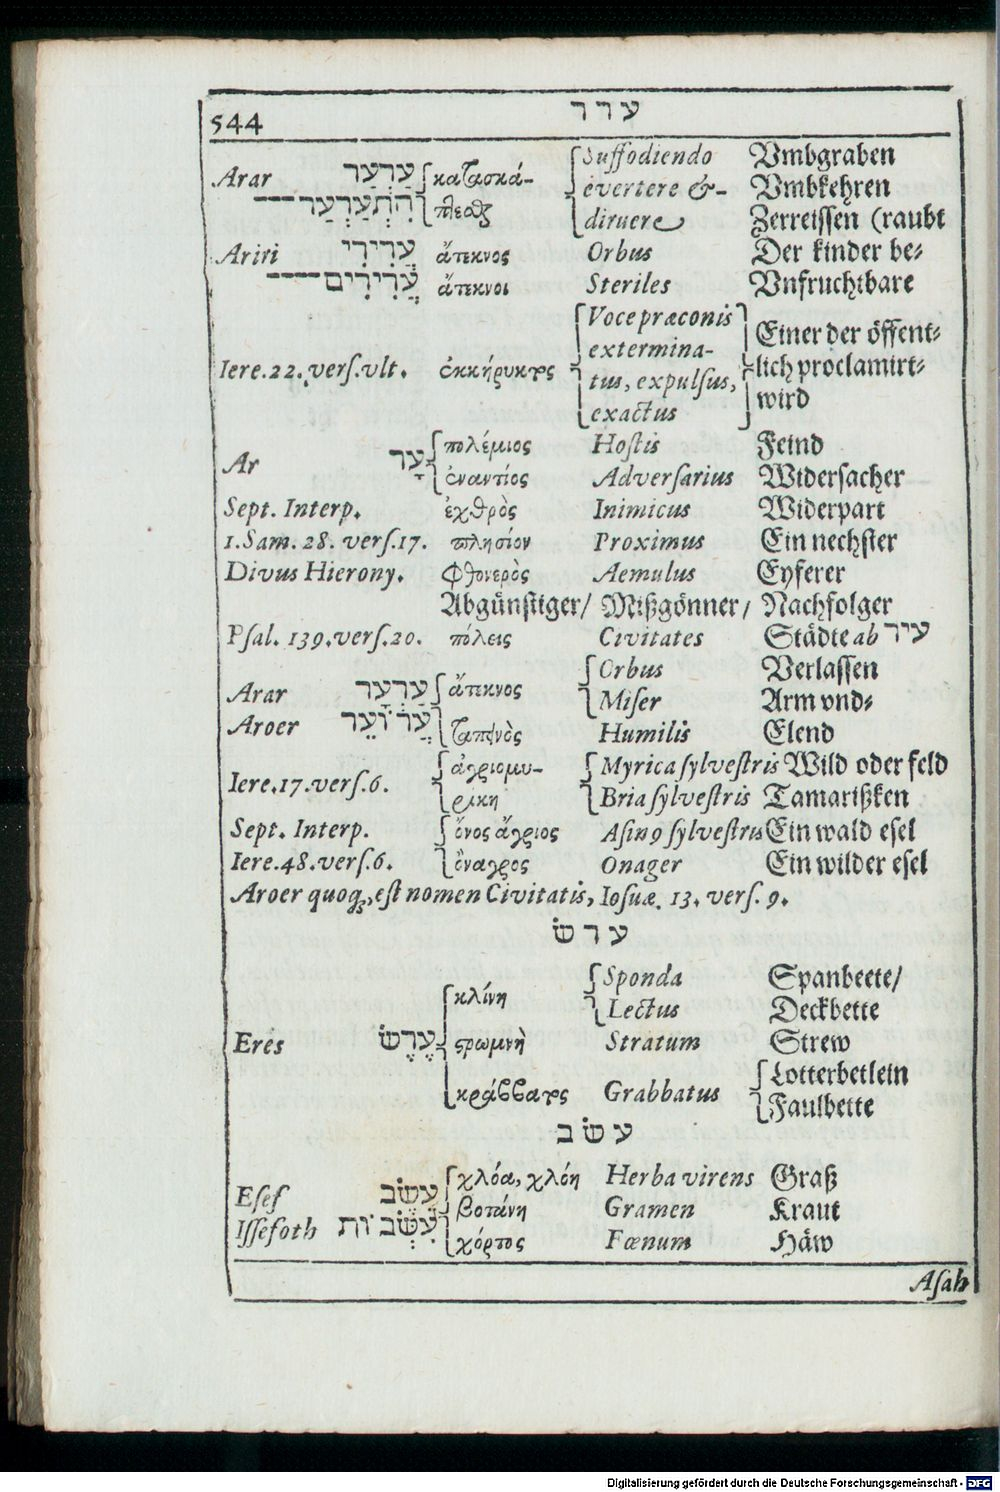 544 ערר
Arar עַרְעַר κατασκά- Suffodiendo Vmbgraben
הִתְעַרְעַר evertere &- Vmbkehren
diruere Zerreissen (raubt
Ariri עֲרִירִי ἄτεκνος Orbus Der kinder be-
עֲרִירִים ἄτεκνοι Steriles Vnfruchtbare
Voce præconis Einer der öffent-
extermina-
Iere. 22. verſ. vlt. ἐκκήρυκτος tus, expulſus, lich proclamirt-
exactus wird
πολέμιος Hoſtis Feind
Ar עָר ἐναντίος Adverſarius Widerſacher
Sept. Interp. ἐχθρὸς Inimicus Widerpart
1. Sam. 28. verſ. 17. πλησίον Proximus Ein nechſter
Divus Hierony. φθονερὸς Aemulus Eyferer
Abgünſtiger/ Mißgönner/ Nachfolger
Pſal. 139. verſ. 20. πόλεις Civitates Städte ab עיר
Orbus Verlaſſen
Arar עַרְעָר ἄτεκνος Miſer Arm vnd-
Aroer עֲרוֹעֵר ταπεινὸς Humilis Elend
ἀγριομυ- Myrica ſylveſtris Wild oder feld
Iere. 17. verſ. 6. ρίκη Bria ſylveſtris Tamarißken
Sept. Interp. ὄνος ἄγριος Aſinꝰ ſylveſtris Ein wald eſel
Iere. 48. verſ. 6. ὄναγρος Onager Ein wilder eſel
Aroer quoq;, eſt nomen Civitatis, Ioſuæ. 13. verſ. 9.
ערשׂ
κλίνη Sponda Spanbeete/
Lectus Deckbette
Eres עֶרֶשׂ στρωμνὴ Stratum Strew
κράββατος Grabbatus Lotterbetlein
Faulbette
עשׂב
χλόα, χλόη Herba virens Graß
Eſeſ עֵשֶׂב βοτάνη Gramen Kraut
Iſſeſoth עִשְּׂבוֹת χόρτος Fœnum Häw
Aſah
Digitalisierung gefördert durch die Deutsche Forschungsgemeinschaft - DFG